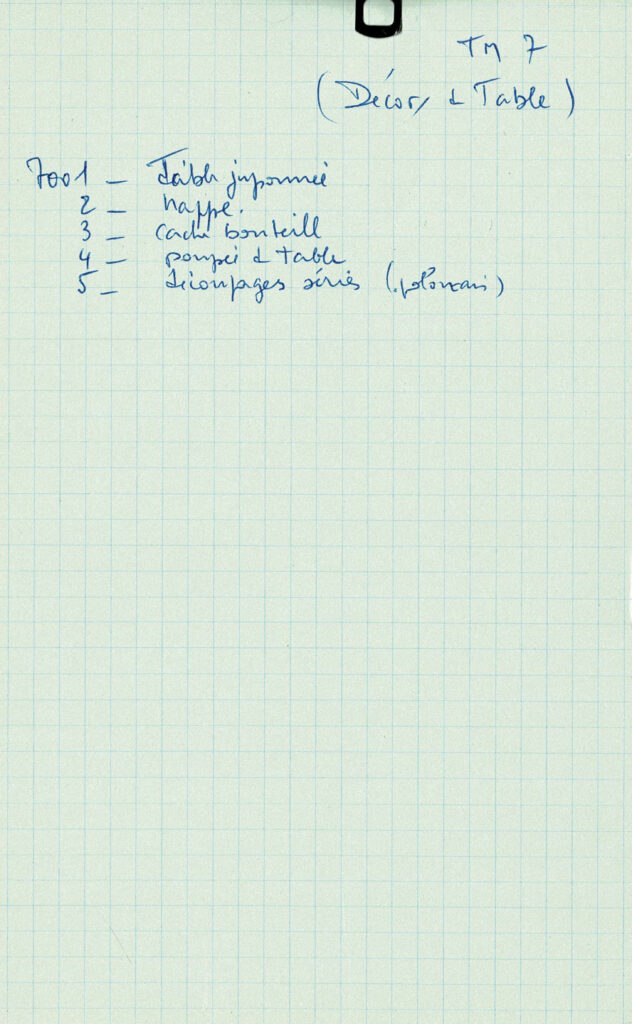 TM 7
(Décors de Table)
7001 — Table juponnée
2 — nappe.
3 — cache bouteille
4 — poupée de table
5 — découpages séries